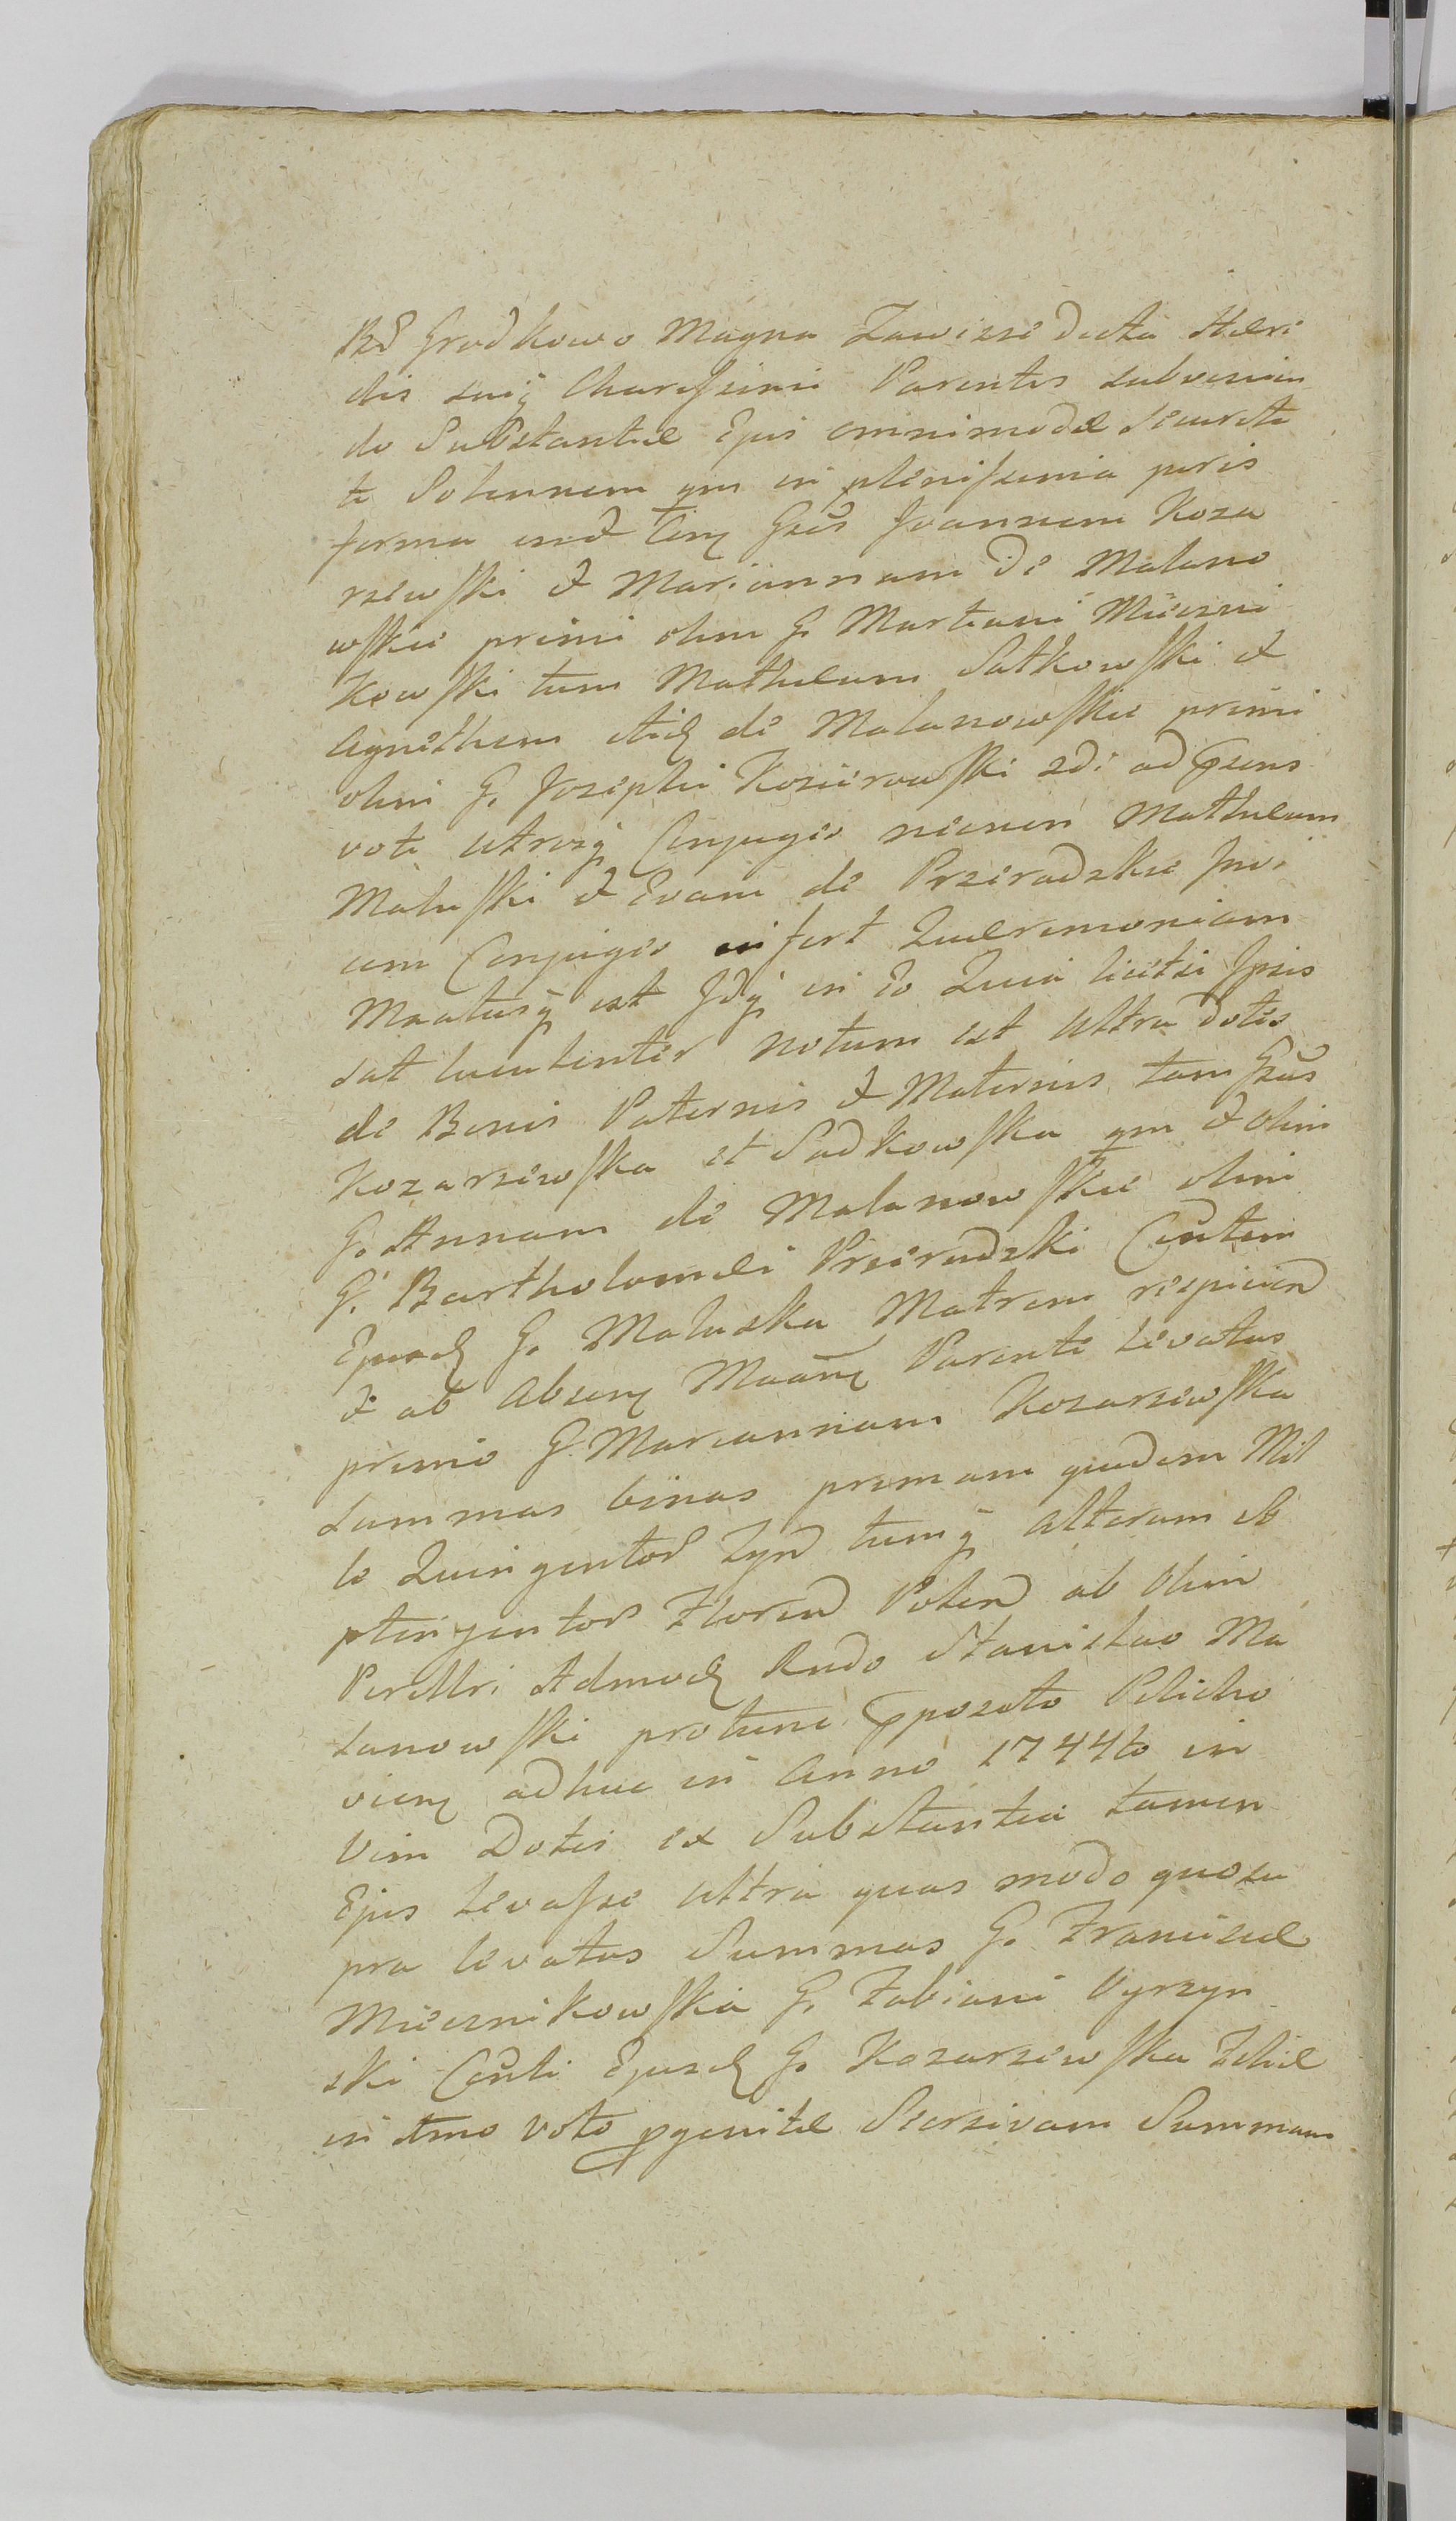 Bd Grodkowo Magna Zawisze dicta Hæri
dis suiq Charissimi Parentis subvenien
do Substantiæ Ejus omnimodæ securita
ti Solennem qm in plenissima juris
forma erga Gsos Joannem Koza
rzewski & Mariannam de Malano
wskie primi olim G. Martiani Mieczni
kowski tum Mathæum Satkowski &
Agnethem de Malanowskie primi
olim G. Josephi Kosierowski 2di ad psens
voti utrosq Conjuges necnon Mathæum
Maluski & Evam de Przeradzkie Invi
cem Conjuges infert Quærimoniam
Mootusq est Idq in eo Quia licet si Ipsis
sat luculenter notum est Ultra dotes
de Bonis Paternis & Maternis tam Gsas
Kozarzewska et Sadkowska qm & olim
G. Annam de Malanowskie olim
G. Bartholomæi Przeradzki Cosortem
Ejusd G. Maluska Matrem respicien
& ab Parente levatas
primo G. Mariannam Kozarzewska
summas binas primam quidem Mil
le Quingentor Zyn tumq alteram se
ptingentor Floren Polon ab Olim
Perilli Admod Rndo Stanislao Ma
lanowski protunc pposito Pelicho
vien adhuc in Anno 1744to in
Vim Dotis ex Substantia tamen
Ejus levasse ultra quas modo quo su
pra levatas Summas G. Franciscæ
Miecznikowskia G. Fabiani Wyrzyn
ski Csorti Ejusd G. Kozarzewska Filiæ
in 1mo voto pgenitæ Seorsivam Summam